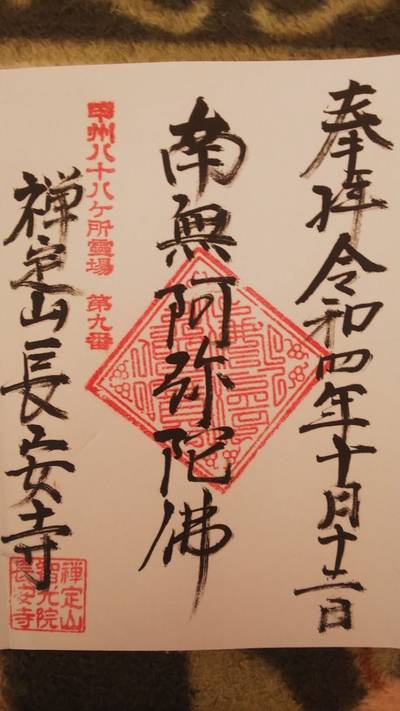 奉拝 令和四年十月十二日
南無阿弥陀佛
甲州八十八ケ所靈場 第九番
禅定山長安寺
禅定山
智光院
長安寺